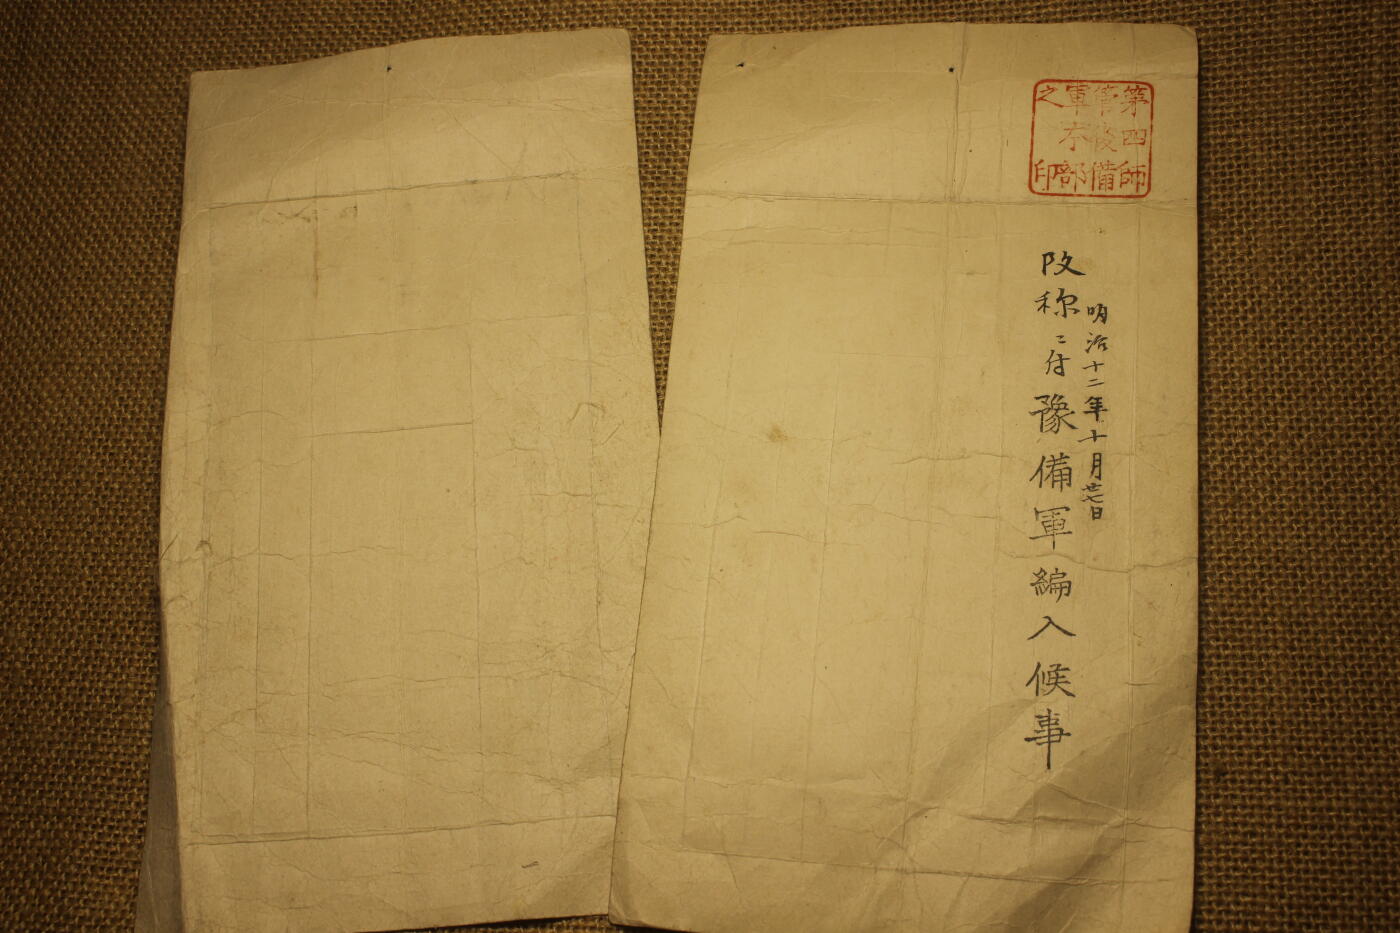 第四師
管後備
軍本部
之印
明治十二年十月廿七日
改称ニ付豫備軍編入候事